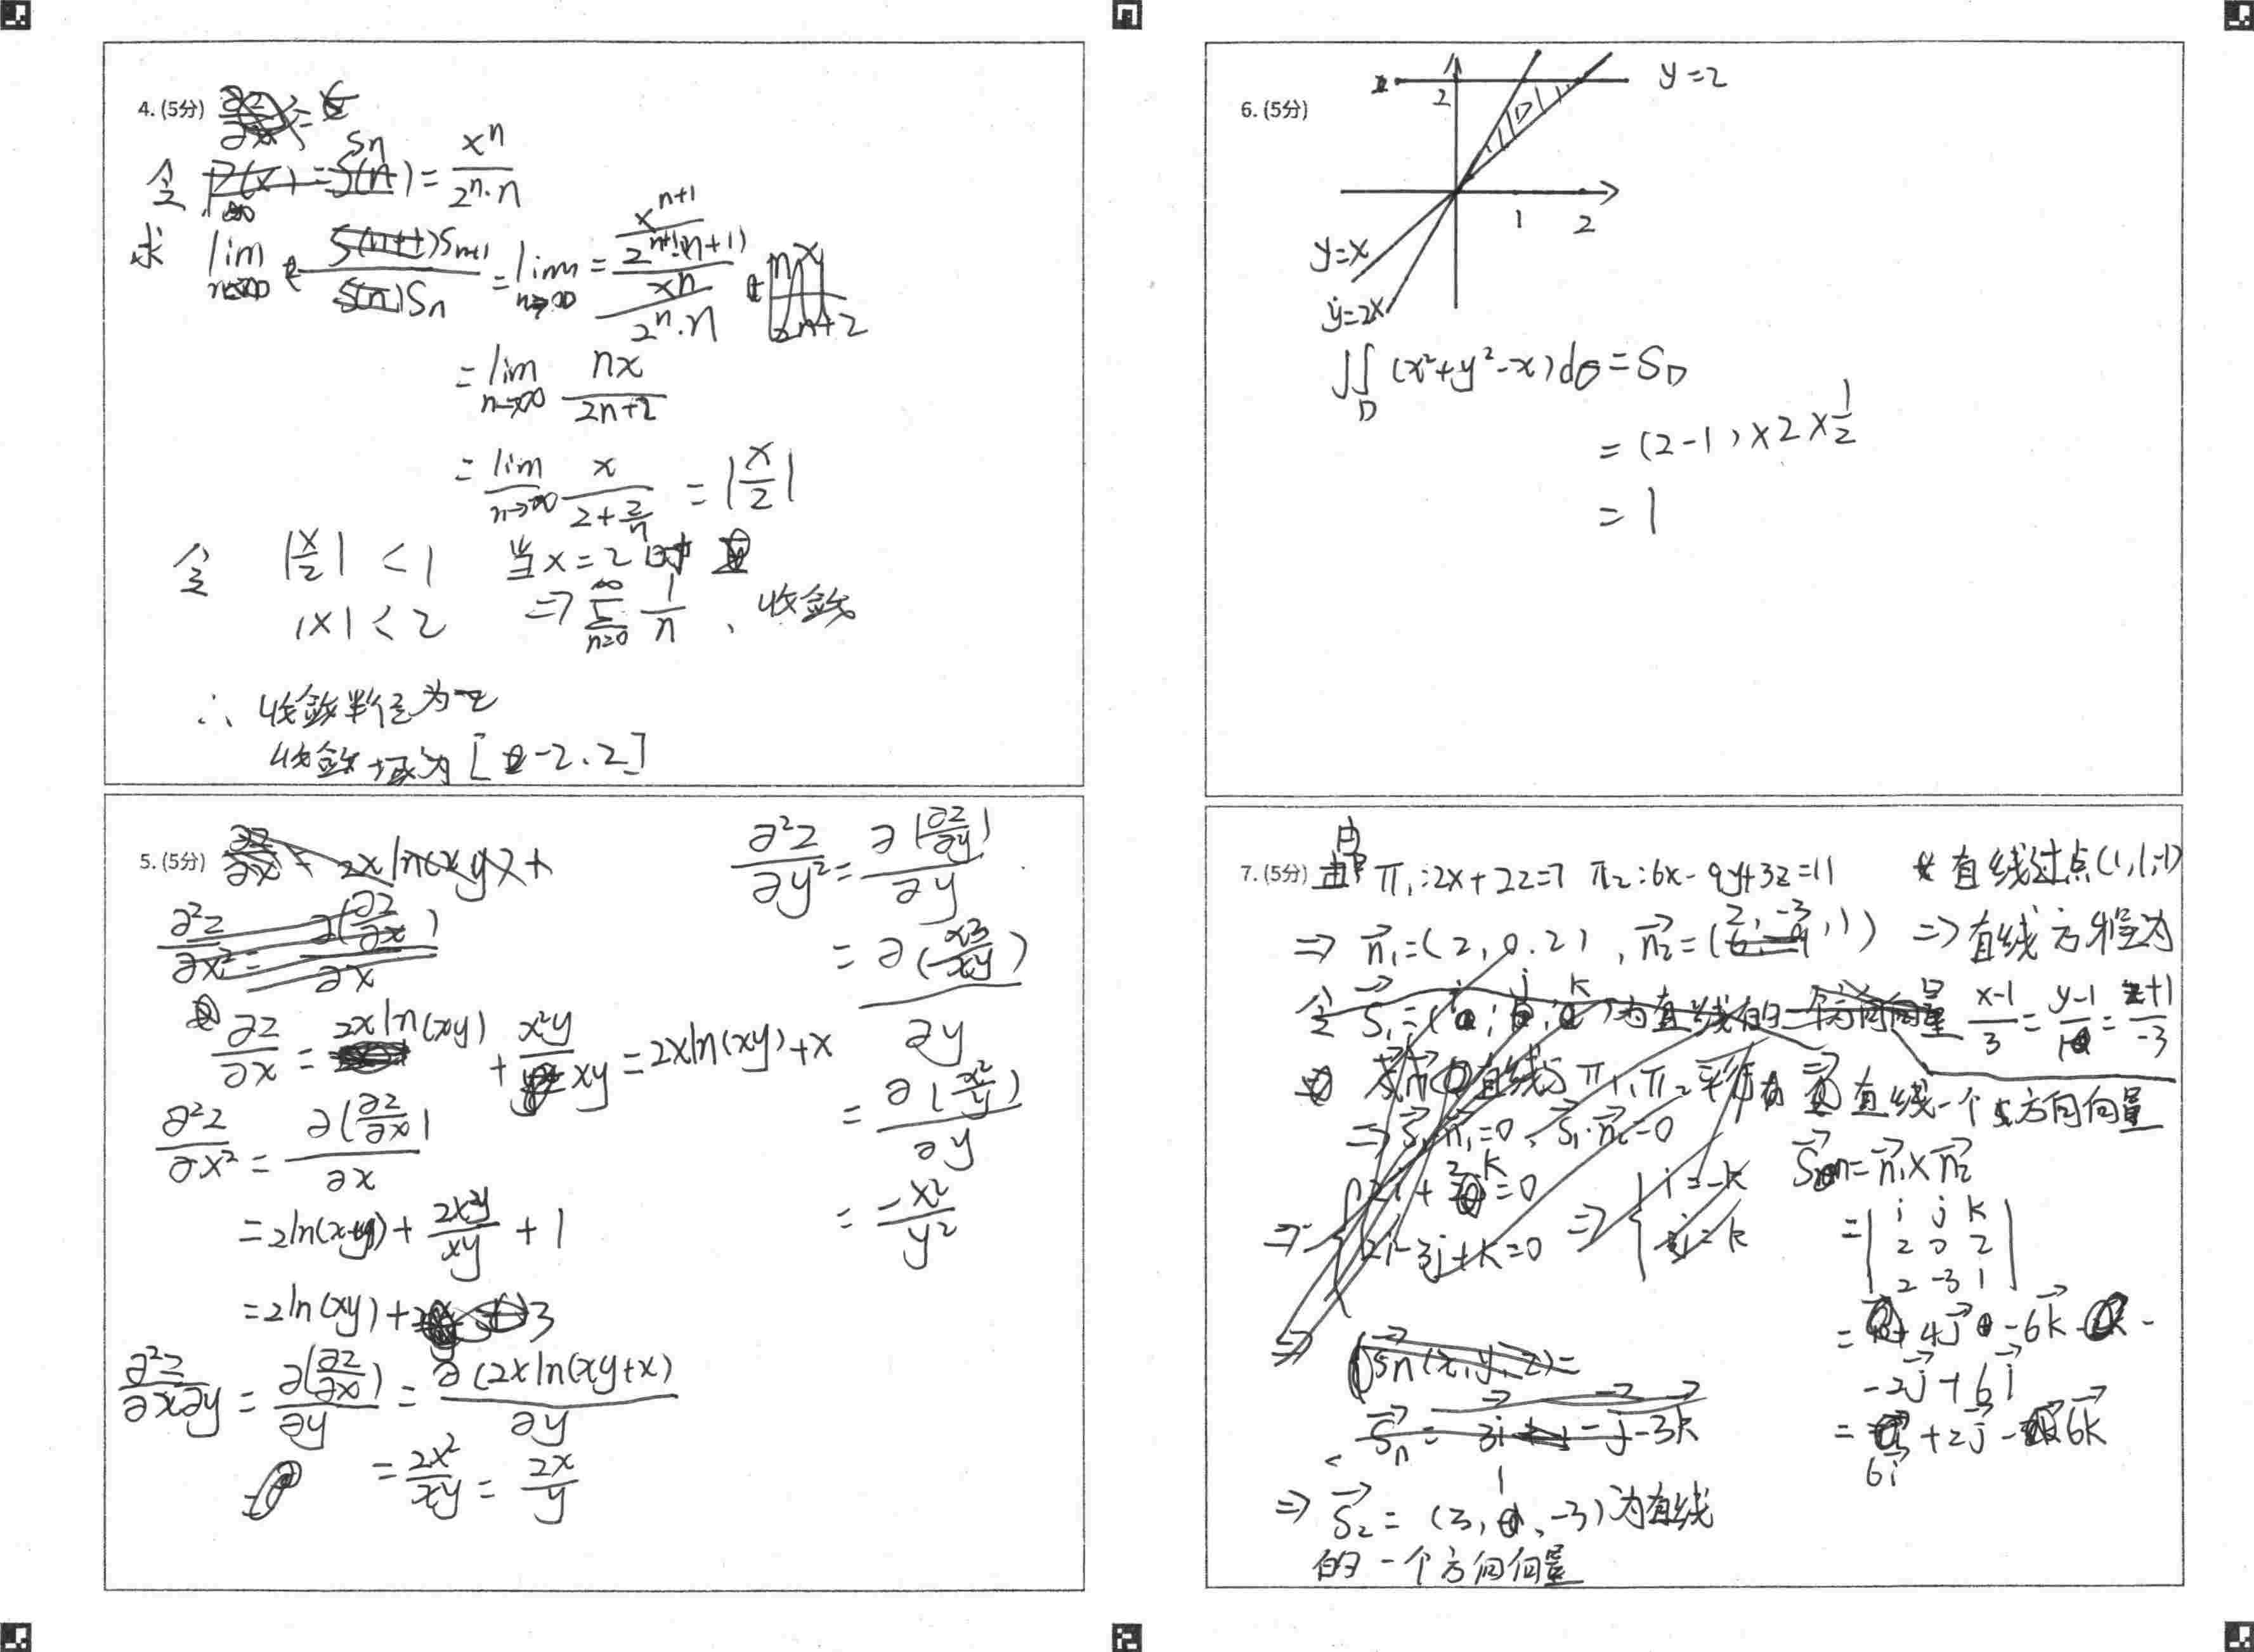 4. (5分)
令 Sn = x^n / (2^n·n)
求 lim n→∞ S_{n+1} / S_n = lim n→∞ = (x^{n+1} / (2^{n+1}(n+1))) / (x^n / (2^n·n))
= lim n→∞ nx / (2n+2)
= lim n→∞ x / (2 + 2/n) = |x/2|
令 |x/2| < 1 当x=2时
|x| < 2 ⇒ ∑_{n=0}^{∞} 1/n 、收敛
∴ 收敛半径为2
收敛域为 [-2、2]
5. (5分)
∂z/∂x = 2xln(xy) + x²y/xy = 2xln(xy)+x
∂²z/∂x² = ∂(∂z/∂x)/∂x
=2ln(xy) + 2xy/xy + 1
=2ln(xy)+3
∂²z/∂x∂y = ∂(∂z/∂x)/∂y = ∂(2xln(xy+x)/∂y
= 2x²/xy = 2x/y
∂²z/∂y² = ∂(∂z/∂y)/∂y
= ∂(x³/xy)/∂y
= ∂(x²/y)/∂y
= -x²/y²
6. (5分)
y=2
2
D
1 2
y=x
y=2x
∬_D (x²+y²-x)dσ = S_D
= (2-1)×2×1/2
= 1
7. (5分) 由 π₁:2x+2z=7 π₂:6x-9y+3z=11
⇒ n₁=(2,0.2), n₂=(2,-3,1)
直线一个方向向量
S = n₁×n₂
= | i j k |
| 2 0 2 |
| 2 -3 1 |
= 4j - 6k -
-2j + 6i
= 6i + 2j - 6k
⇒ S₂ = (3, 1, -3)为直线
的一个方向向量
直线过点(1,1,-1)
⇒ 直线方程为
(x-1)/3 = (y-1)/1 = (z+1)/-3